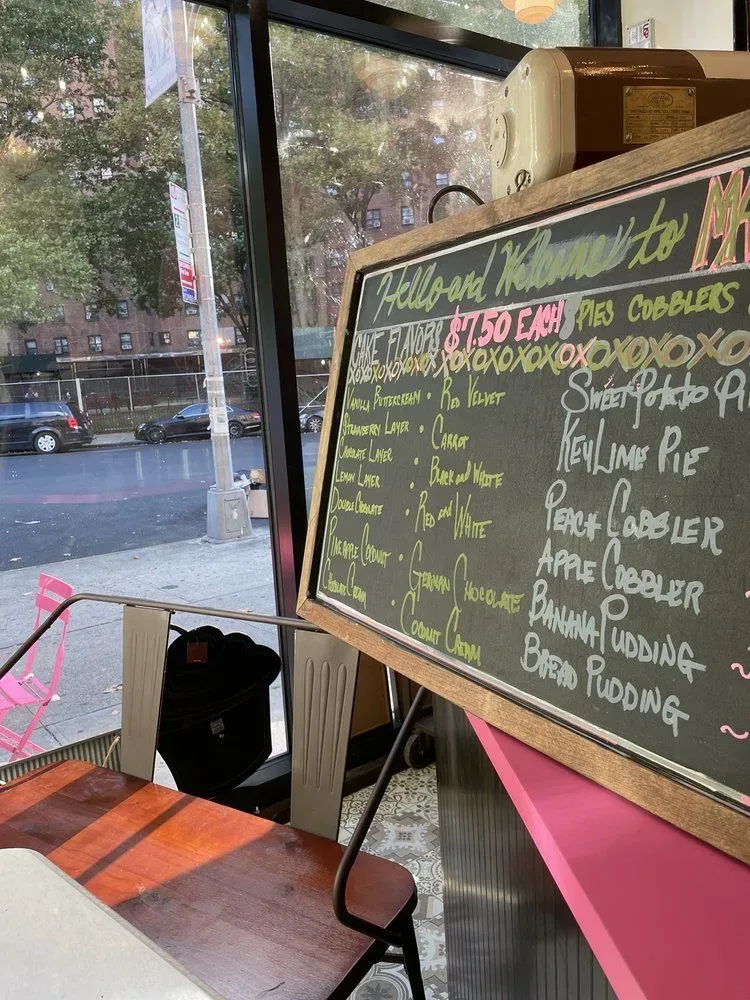 Hello and Welcome to MA
CAKE FLAVORS $7.50 EACH PIES COBBLERS
XOXOXOXOXOXOXOXOXOXOXO
Vanilla Buttercream • Red Velvet
Strawberry Layer • Carrot
Chocolate Layer • Black and White
Lemon Layer • Red and White
Double Chocolate
Pineapple Coconut • German Chocolate
Chocolate Cream • Coconut Cream
Sweet Potato Pi
Key Lime Pie
Peach Cobbler
Apple Cobbler
Banana Pudding
Bread Pudding